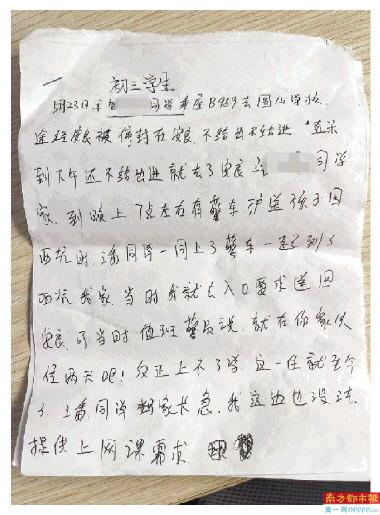 初三学生
5月23日早 同学乘座B959去圆仙学校
途经良被保持在安良 不给出不给进
到下午还不给出进 就去了安良 同学
家 到晚上7点左右有警车护送孩子回
西坑时 潘同学一同上了警车一起到了
西坑我家 当时我就去入口要求送回
安良 可当时值班警员说 就在你家伏
住两天吧! 反正上不了学 这一住就至今
了 潘同学家长急 我这边也没法
提供上网课需求
南方都市报
奥一网oeeee.com